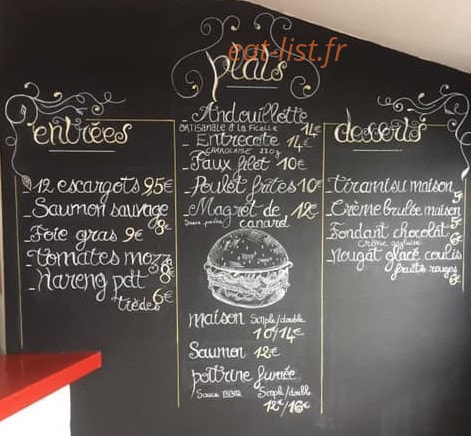 eat-list.fr
entrées
12 escargots 9,5€
Saumon sauvage
8€
Foie gras 9€
tomates mozza
8€
Hareng pdt
tièdes 6€
plats
Andouillette
ARTISANALE à la Ficelle 14€
Entrecote 14€
CHAROLAISE 220g
Faux filet 10€
Poulet frites 10€
Magret de 12€
canard
maison Simple/double
10/14€
Saumon 12€
poitrine fumée
Sauce BBQ Simple/double
12€/16€
desserts
Tiramisu maison
Crème brulée maison
Fondant chocolat
Crème anglaise
Nougat glacé coulis
fruits rouges